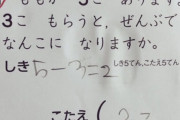 ももが 5こ あります。
3こ もらうと，ぜんぶで
なんこに なりますか。
しき5てん、こたえ5てん
しき 5-3=2
こたえ (2